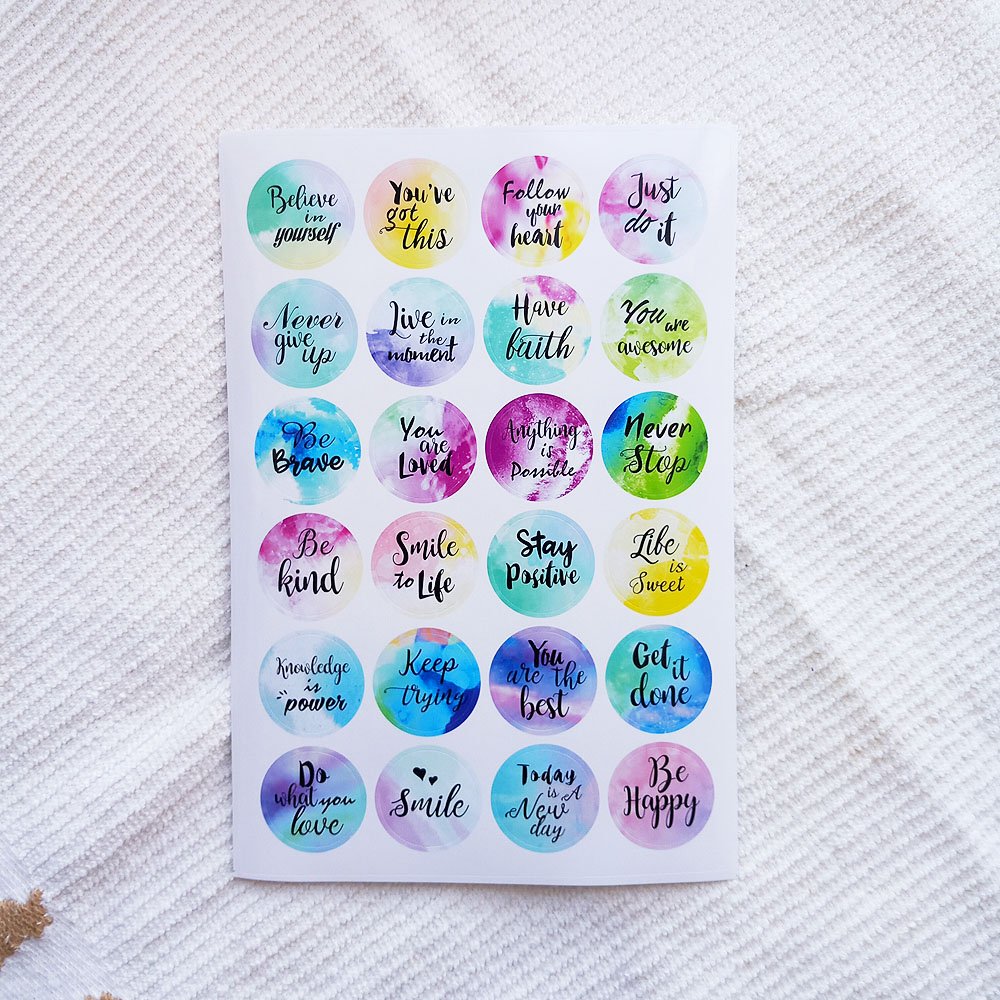 Believe
in
yourself
You've
got
this
Follow
your
heart
Just
do it
Never
give
up
Live in
the
moment
Have
faith
You are
awesome
Be
Brave
You
are
Loved
Anything
is
Possible
Never
Stop
Be
kind
Smile
to Life
Stay
Positive
Life
is
Sweet
Knowledge
is
power
Keep
trying
You
are the
best
Get it
done
Do
what you
love
Smile
Today
is A
New
day
Be
Happy